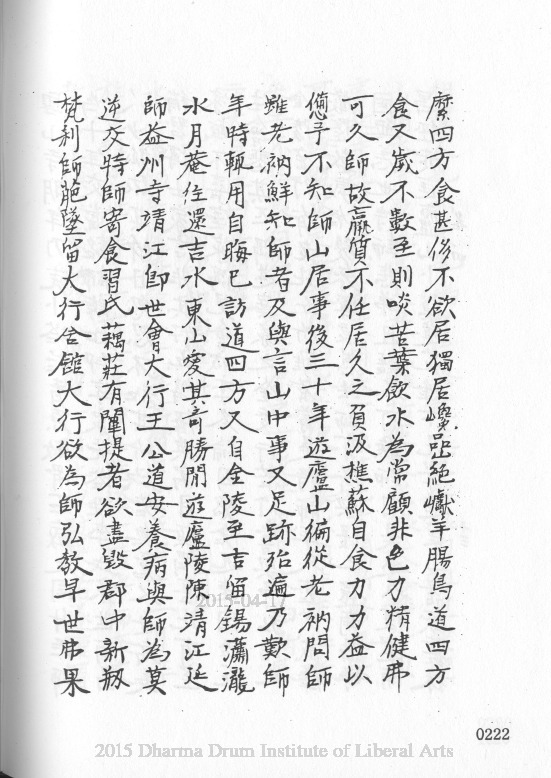 縻四方食甚侈不欲居獨居巉嵒絕巘羊腸鳥道四方
食又歲不數至則啖苦葉飲水為常顧非色力精健弗
可久師故羸質不任居久之負汲樵蘇自食力力益以
憊予不知師山居事後三十年遊廬山徧從老衲問師
雖老衲鮮知師者及與言山中事又足跡殆遍乃歎師
年時輒用自晦已訪道四方又自金陵至吉留錫瀟瀧
水月菴往還吉水東山愛其奇勝間遊廬陵陳清江延
師益州寺清江即世會大行王公道安養病與師為莫
逆交時師寄食習氏藕莊有闡提者欲盡毀郡中新剏
梵剎師跪墜留大行合館大行欲為師弘教早世弗果
2015-04-17
0222
2015 Dharma Drum Institute of Liberal Arts